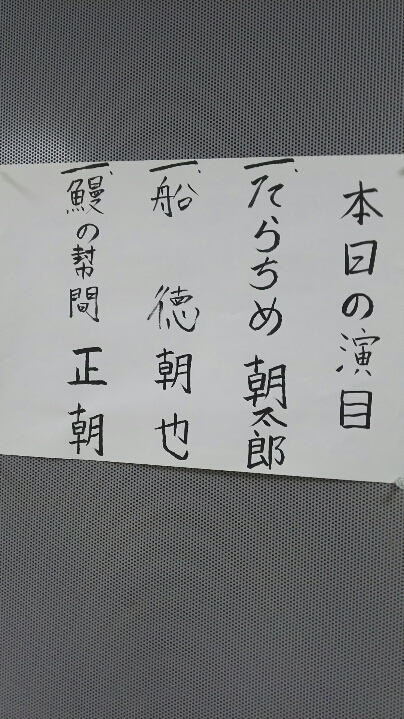 本日の演目
一、たらちめ 朝太郎
一、船徳 朝也
一、鰻の幇間 正朝